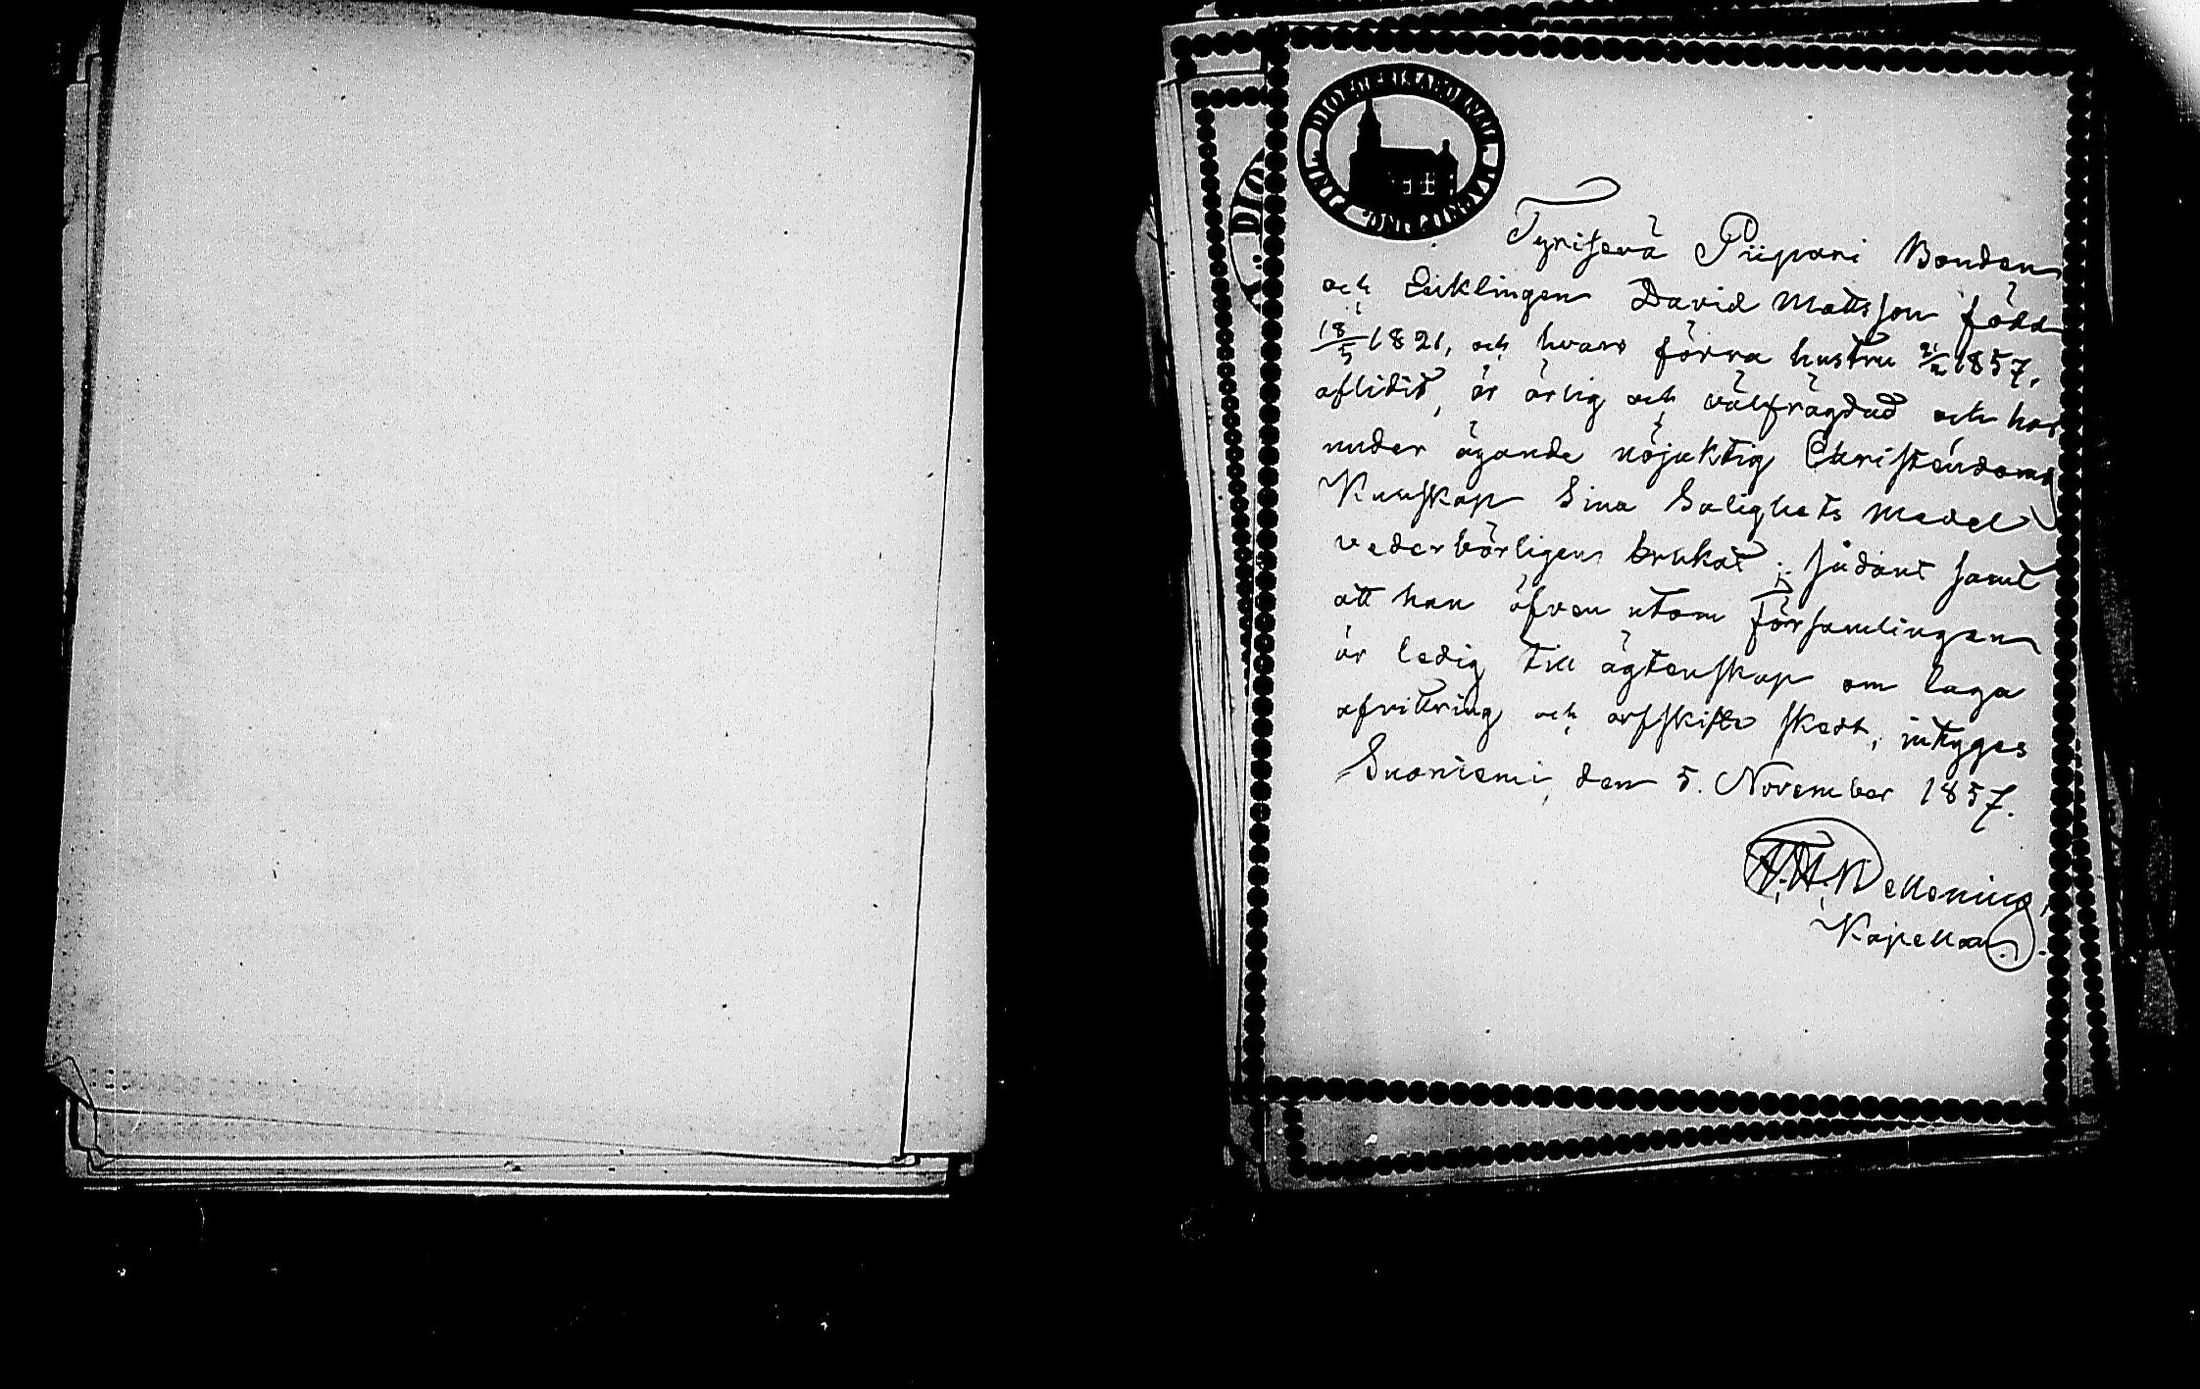 Tyrisevä Piipari Bonden
och Enklingen David Mattsson född
18/5 1821, och hvars förra hustru 21/2 1857,
aflidit, är ärlig och välfrägdad och har
under ägande nöjaktig Christendoms
Kunskap Sina Salighets Medel
vederbörligen brukat; sådant samt
att han äfven utom församlingen
är ledig till ägtenskap om laga
afvittring och arfskifte skedt, intyges
Suoniemi, den 5. November 1857.
Kapellan.